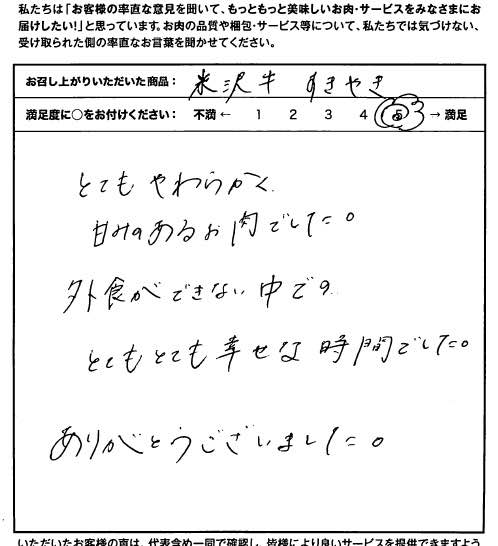 私たちは「お客様の率直な意見を聞いて、もっともっと美味しいお肉・サービスをみなさまにお
届けしたい!」と思っています。お肉の品質や梱包・サービス等について、私たちでは気づけない、
受け取られた側の率直なお言葉を聞かせてください。
お召し上がりいただいた商品: 米沢牛 すきやき
満足度に○をお付けください: 不満 ← 1 2 3 4 5 → 満足
とてもやわらかく
甘みのあるお肉でした。
外食ができない中での
とてもとても幸せな時間でした。
ありがとうございました。
いただいたお客様の声は、代表含め一同で確認し、皆様により良いサービスを提供できますよう